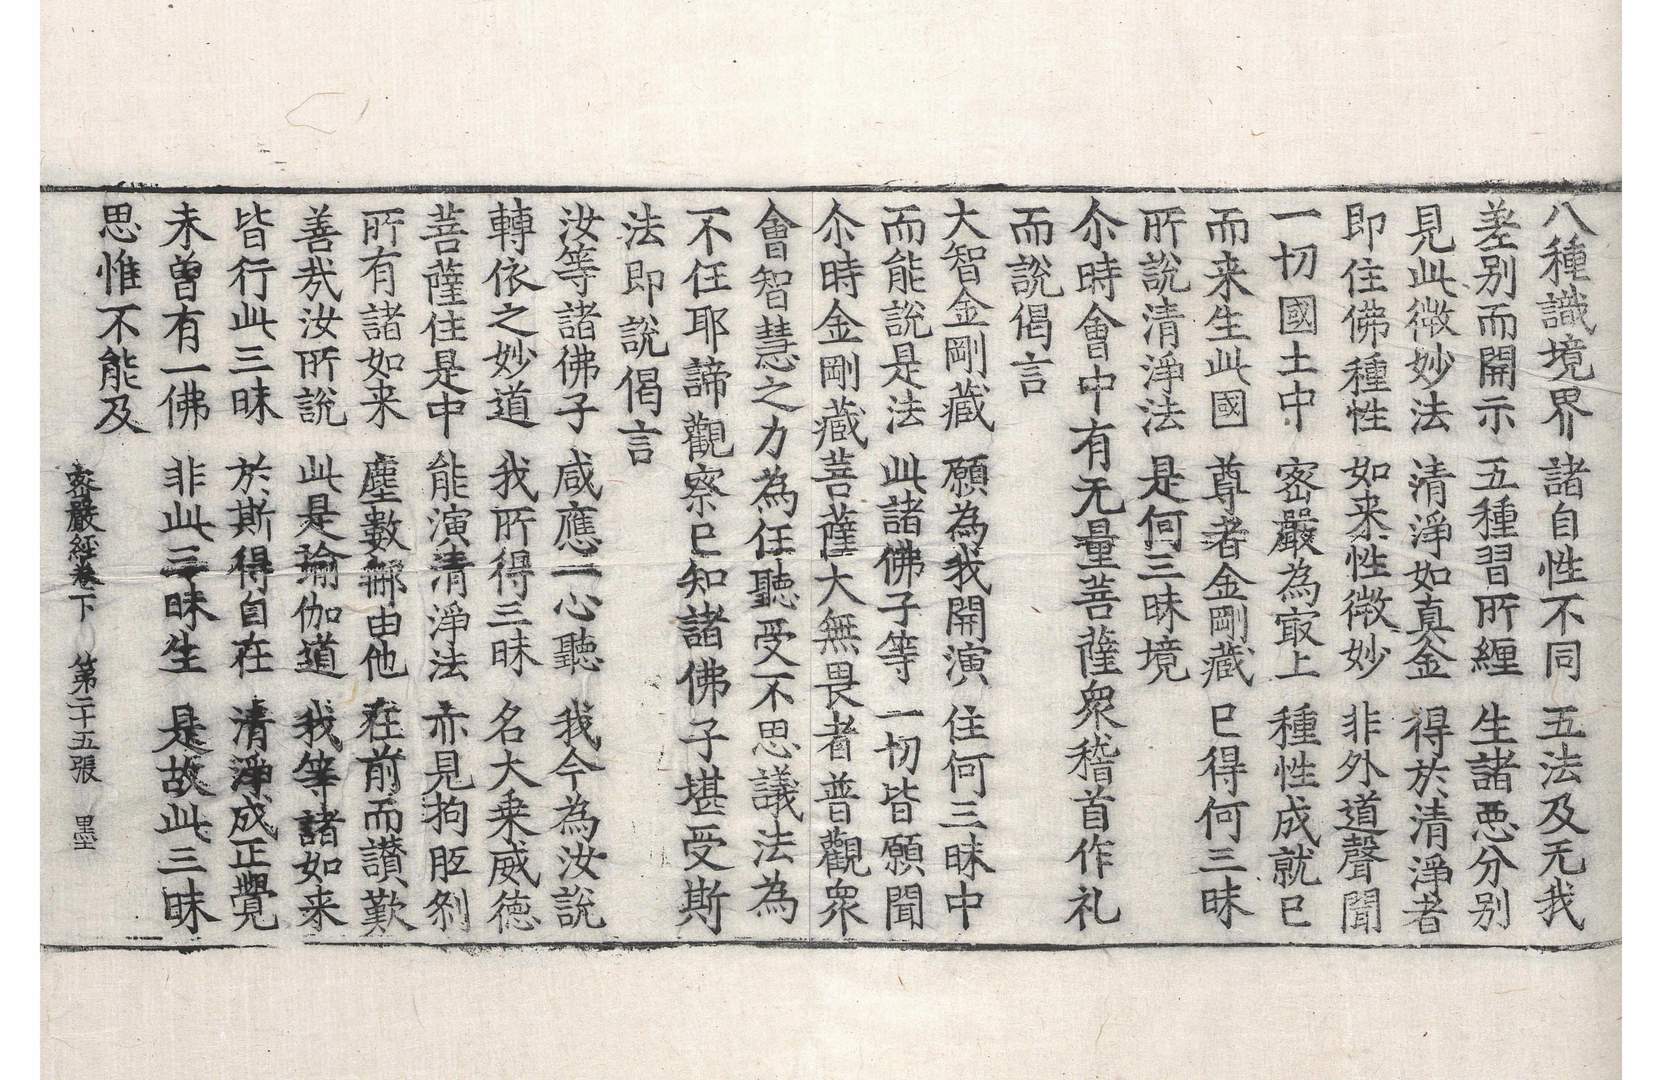 八種識境界　諸自性不同　五法及无我
差別而開示　五種習所纒　生諸惡分別
見此微妙法　清淨如真金　得於清淨者
即住佛種性　如来性微妙　非外道聲聞
一切國土中　密嚴為寂上　種性成就已
而来生此國　尊者金剛藏　已得何三昧
所說清淨法　是何三昧境
尒時會中有无量菩薩衆稽首作礼
而說偈言
大智金剛藏　願為我開演　住何三昧中
而能說是法　此諸佛子等　一切皆願聞
尒時金剛藏菩薩大無畏者普觀衆
會智慧之力為任聽受不思議法為
不任耶諦觀察已知諸佛子堪受斯
法即說偈言
汝等諸佛子　咸應一心聽　我今為汝說
轉依之妙道　我所得三昧　名大乗威徳
菩薩住是中　能演清淨法　亦見拘胝剎
所有諸如来　塵數那由他　在前而讃歎
善㢤汝所說　此是瑜伽道　我等諸如来
皆行此三昧　於斯得自在　清淨成正覺
未曽有一佛　非此三昧生　是故此三昧
思惟不能及
密嚴經卷下　第二十五張　墨